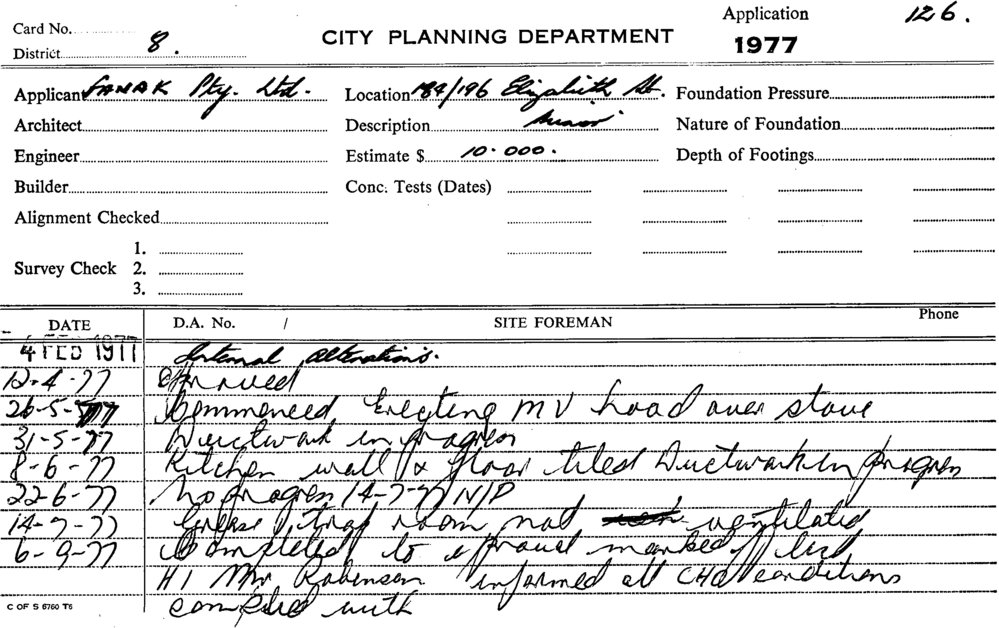 Application 126.
Card No.
CITY PLANNING DEPARTMENT 1977
District 8.
Applicant Pty. Ltd. Location 184/196 Elizabeth St. Foundation Pressure
Architect Description Minor Nature of Foundation
Engineer Estimate $ 10.000. Depth of Footings
Builder Conc. Tests (Dates)
Alignment Checked
1.
Survey Check 2.
3.
DATE D.A. No. / SITE FOREMAN Phone
4 FEB 1977 Internal alterations.
12-4-77 Approved
26-5-77 Commenced Erecting MV hood over stove
31-5-77 Ductwork in progress
8-6-77 Kitchen wall & floor tiled Ductwork in progress
22-6-77 No progress 14-7-77 N/P
14-7-77 Grease trap room not ventilated
6-9-77 Completed to approval marked off list
HI Mr Robinson informed all CHO conditions
complied with
C OF S 6760 T6